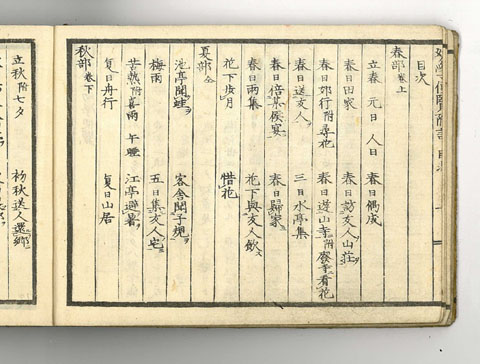 目次
春部 卷上
立春 元日 人日 春日偶成
春日田家 春日訪友人山莊
春日郊行附尋花 春日遊山寺附廢寺看花
春日送友人 三日水亭集
春日陪某侯宴 春日歸家
春日雨集 花下與友人飲
花下步月 惜花
夏部 全
池亭聞蛙 客舍聞子規
梅雨 五日集友人宅
苦熱附喜雨 午睡 江亭避暑
夏日舟行 夏日山居
秋部 卷下
立秋附七夕 初秋送人還鄉